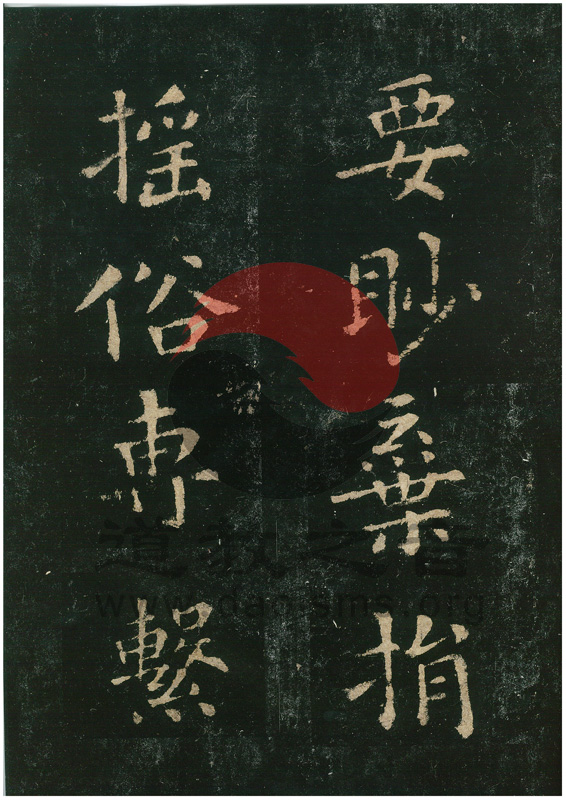 要眇棄捐
摇俗専繫
道教之音
www.daoisms.org